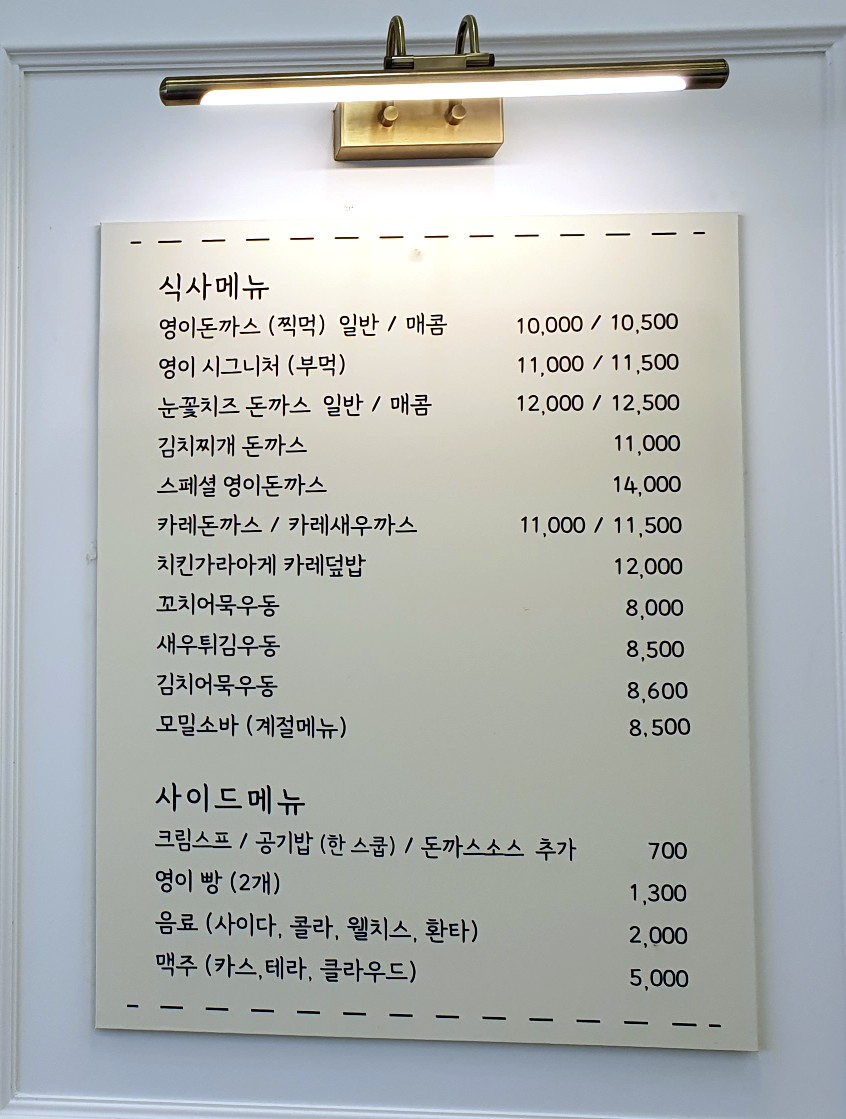 식사메뉴
영이돈까스 (찍먹) 일반 / 매콤 10,000 / 10,500
영이 시그니처 (부먹) 11,000 / 11,500
눈꽃치즈 돈까스 일반 / 매콤 12,000 / 12,500
김치찌개 돈까스 11,000
스페셜 영이돈까스 14,000
카레돈까스 / 카레새우까스 11,000 / 11,500
치킨가라아게 카레덮밥 12,000
꼬치어묵우동 8,000
새우튀김우동 8,500
김치어묵우동 8,600
모밀소바 (계절메뉴) 8,500
사이드메뉴
크림스프 / 공기밥 (한 스쿱) / 돈까스소스 추가 700
영이 빵 (2개) 1,300
음료 (사이다, 콜라, 웰치스, 환타) 2,000
맥주 (카스,테라, 클라우드) 5,000